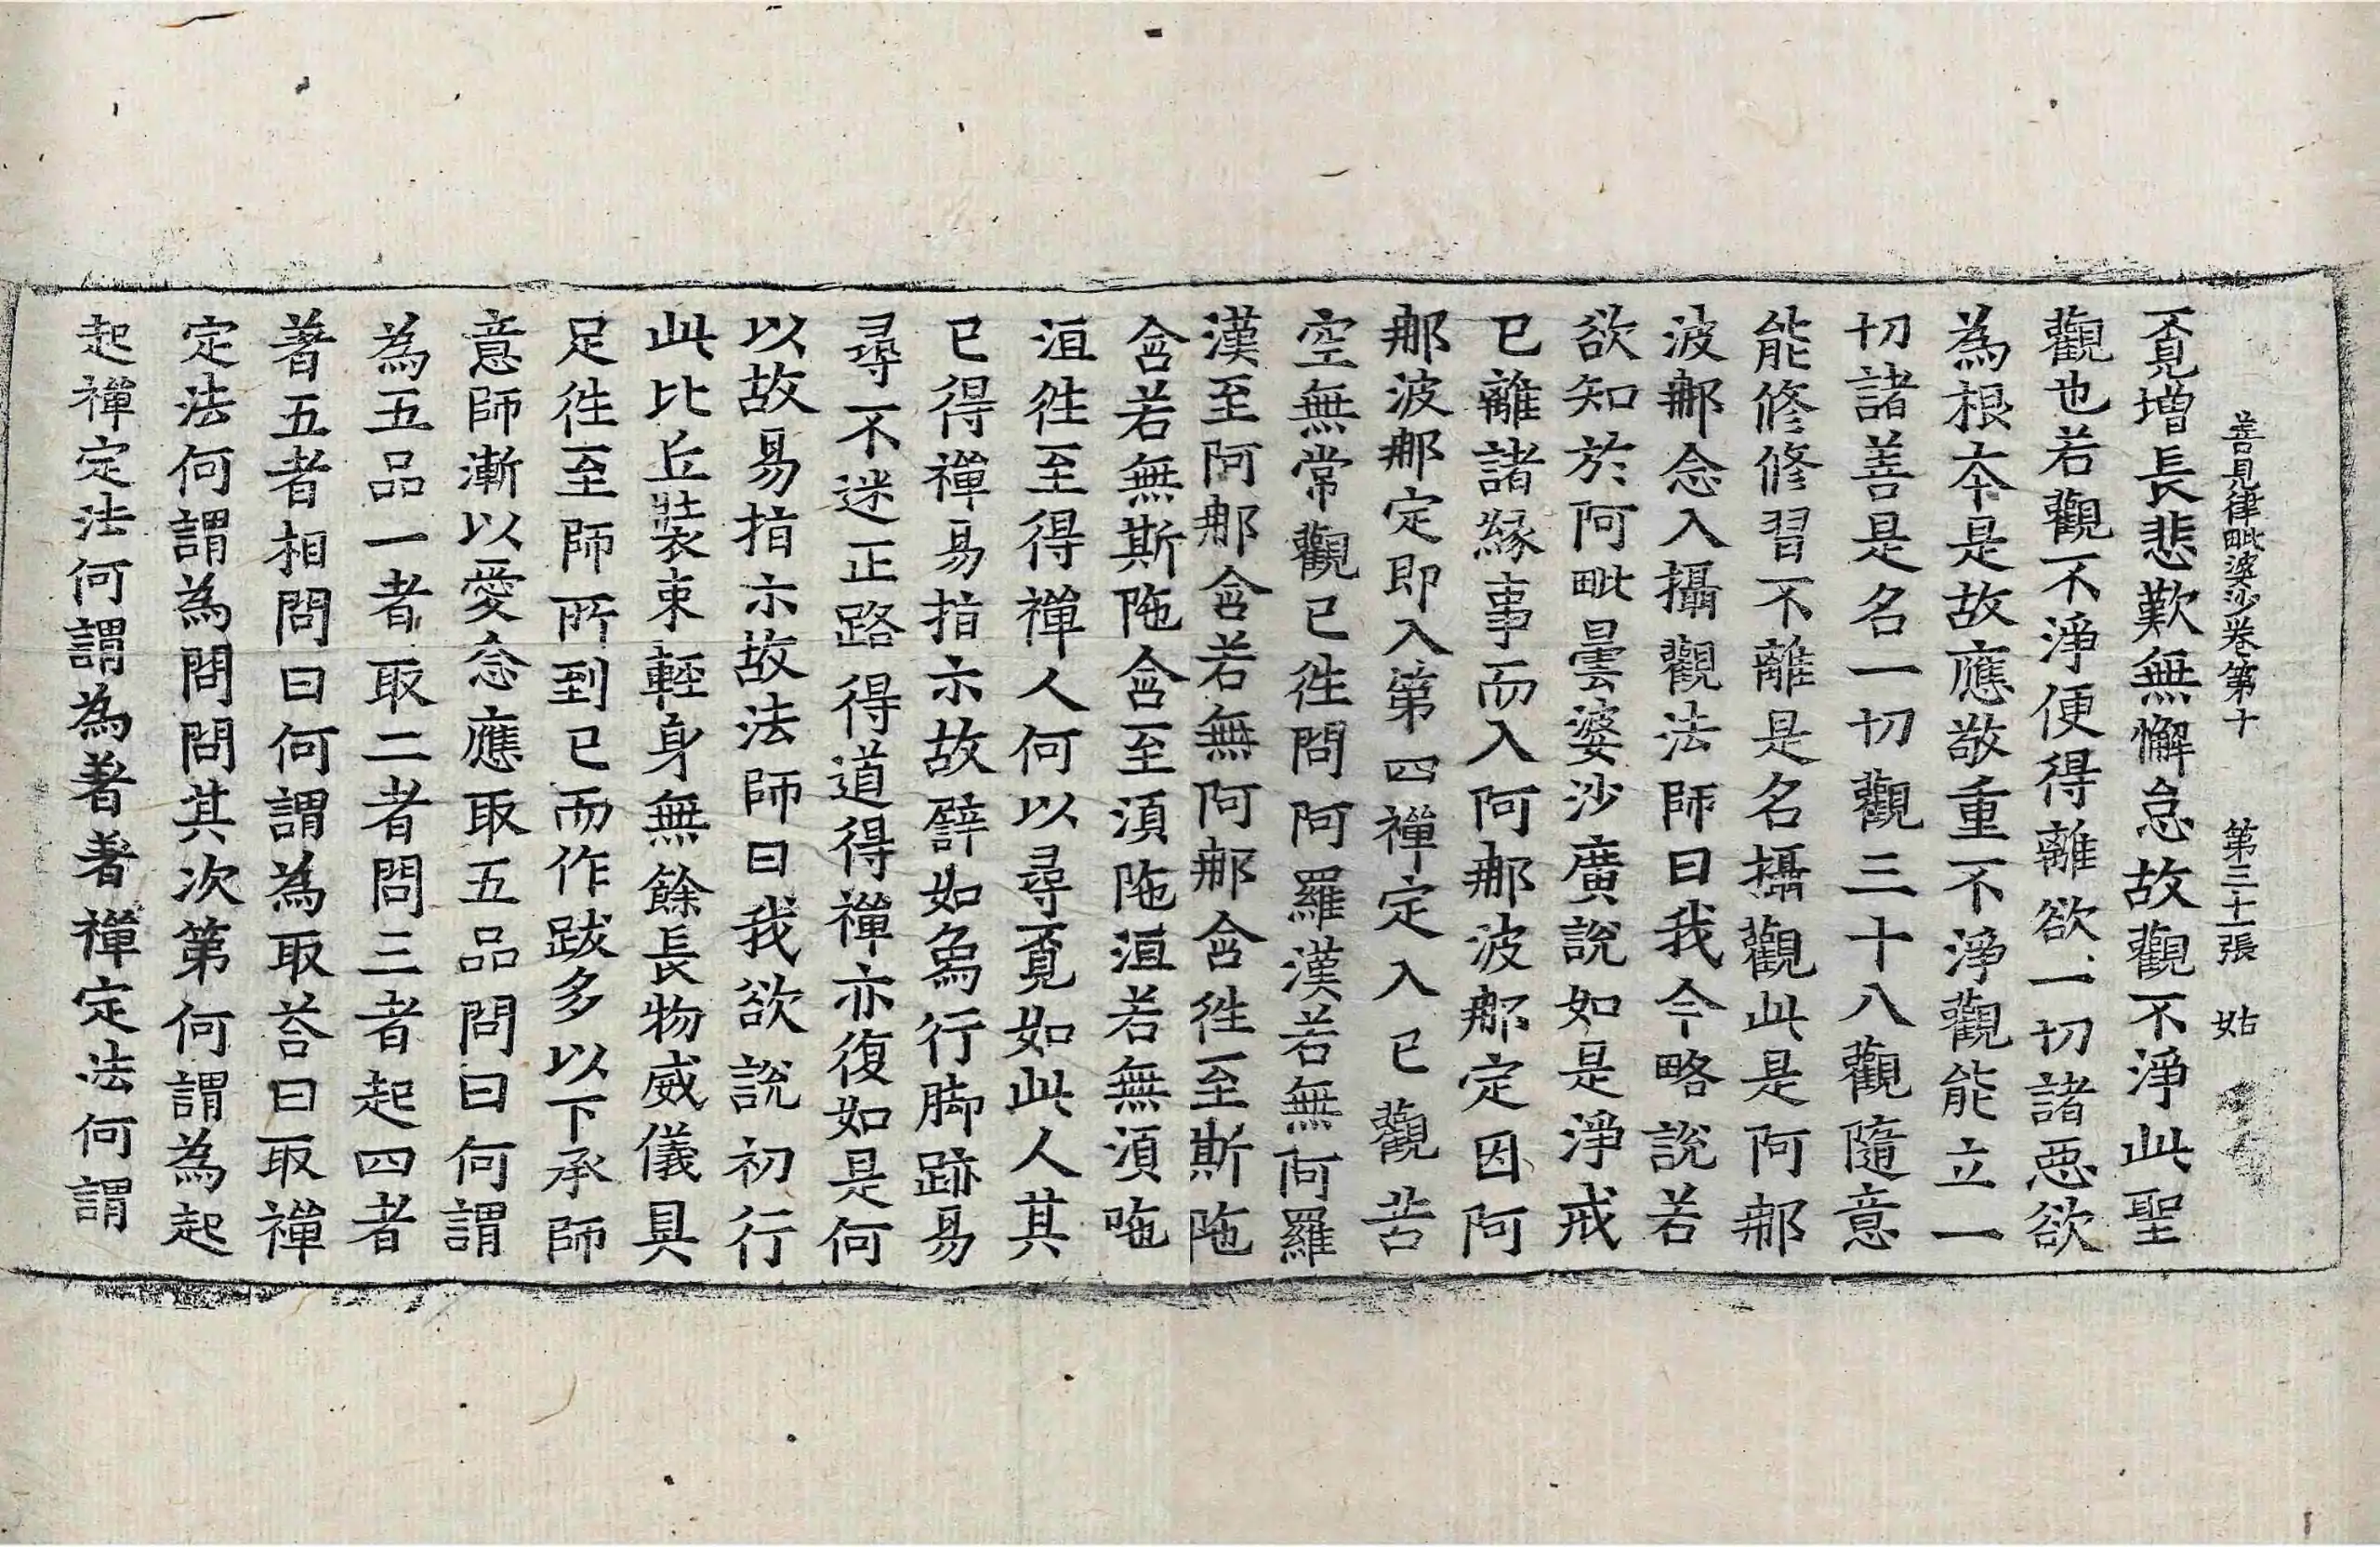 善見律毗婆沙卷第十 第三十一張 姑
不覔增長悲歎無懈怠故觀不淨此聖
觀也若觀不淨便得離欲一切諸惡欲
為根夲是故應敬重不淨觀能立一
切諸善是名一切觀三十八觀隨意
能修修習不離是名攝觀此是阿那
波那念入攝觀法師曰我今略說若
欲知於阿毗曇婆沙廣說如是淨戒
已離諸緣事而入阿那波那定因阿
那波那定即入第四禪定入已觀苦
空無常觀已徃問阿羅漢若無阿羅
漢至阿那含若無阿那含徃至斯陁
含若無斯陁含至湏陁洹若無湏陁
洹徃至得禪人何以尋覔如此人其
已得禪易指示故譬如象行脚跡易
尋不迷正路得道得禪亦復如是何
以故易指示故法師曰我欲說初行
此比丘裝束輕身無餘長物威儀具
足徃至師所到已而作跋多以下承師
意師漸以愛念應取五品問曰何謂
為五品一者取二者問三者起四者
著五者相問曰何謂為取荅曰取禪
定法何謂為問問其次第何謂為起
起禪定法何謂為著著禪定法何謂